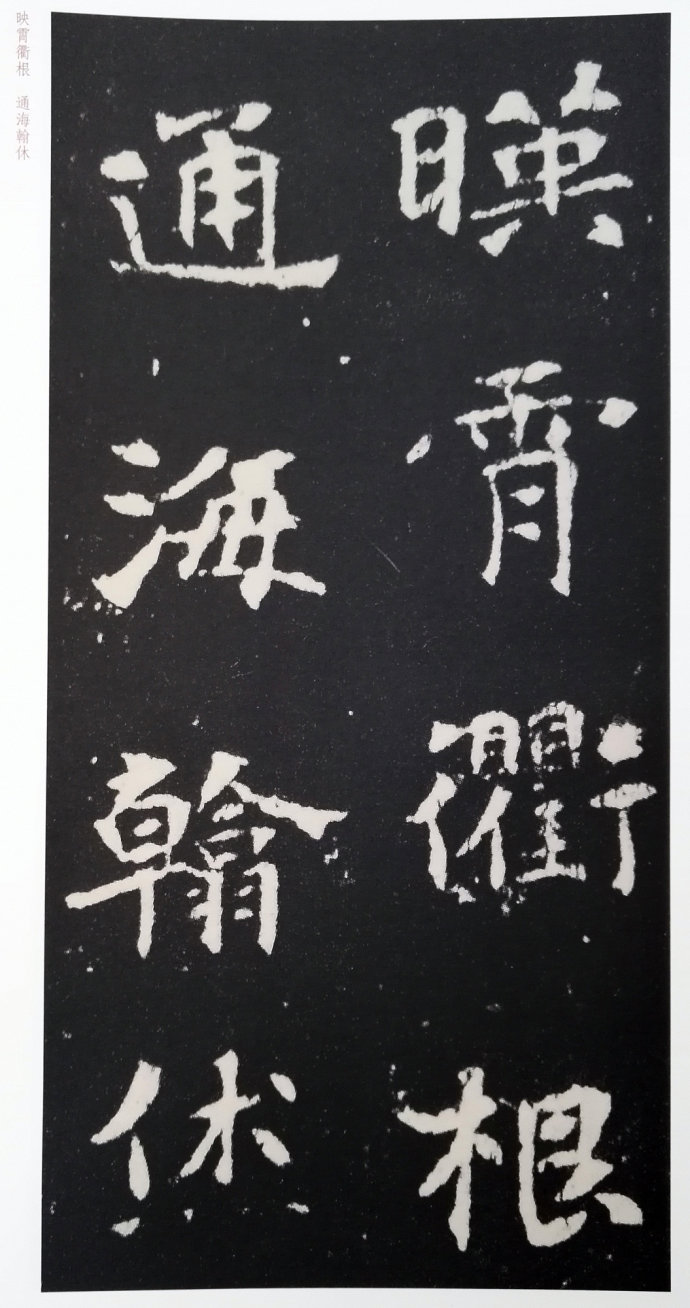 暎霄衢根
通海翰休
映霄衢根 通海翰休